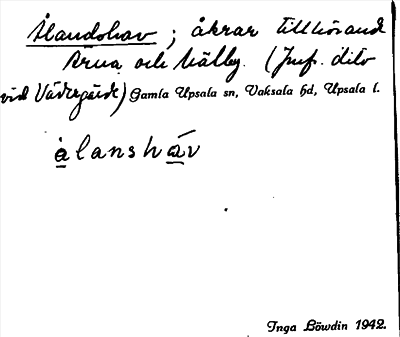 Ålandshav ; åkrar tillhörande
Ärna och Hälby. (Jmf. dito
vid Vädergärde) Gamla Upsala sn, Vaksala hd, Upsala l.
ålanshäv
Inga Löwdin 1942.